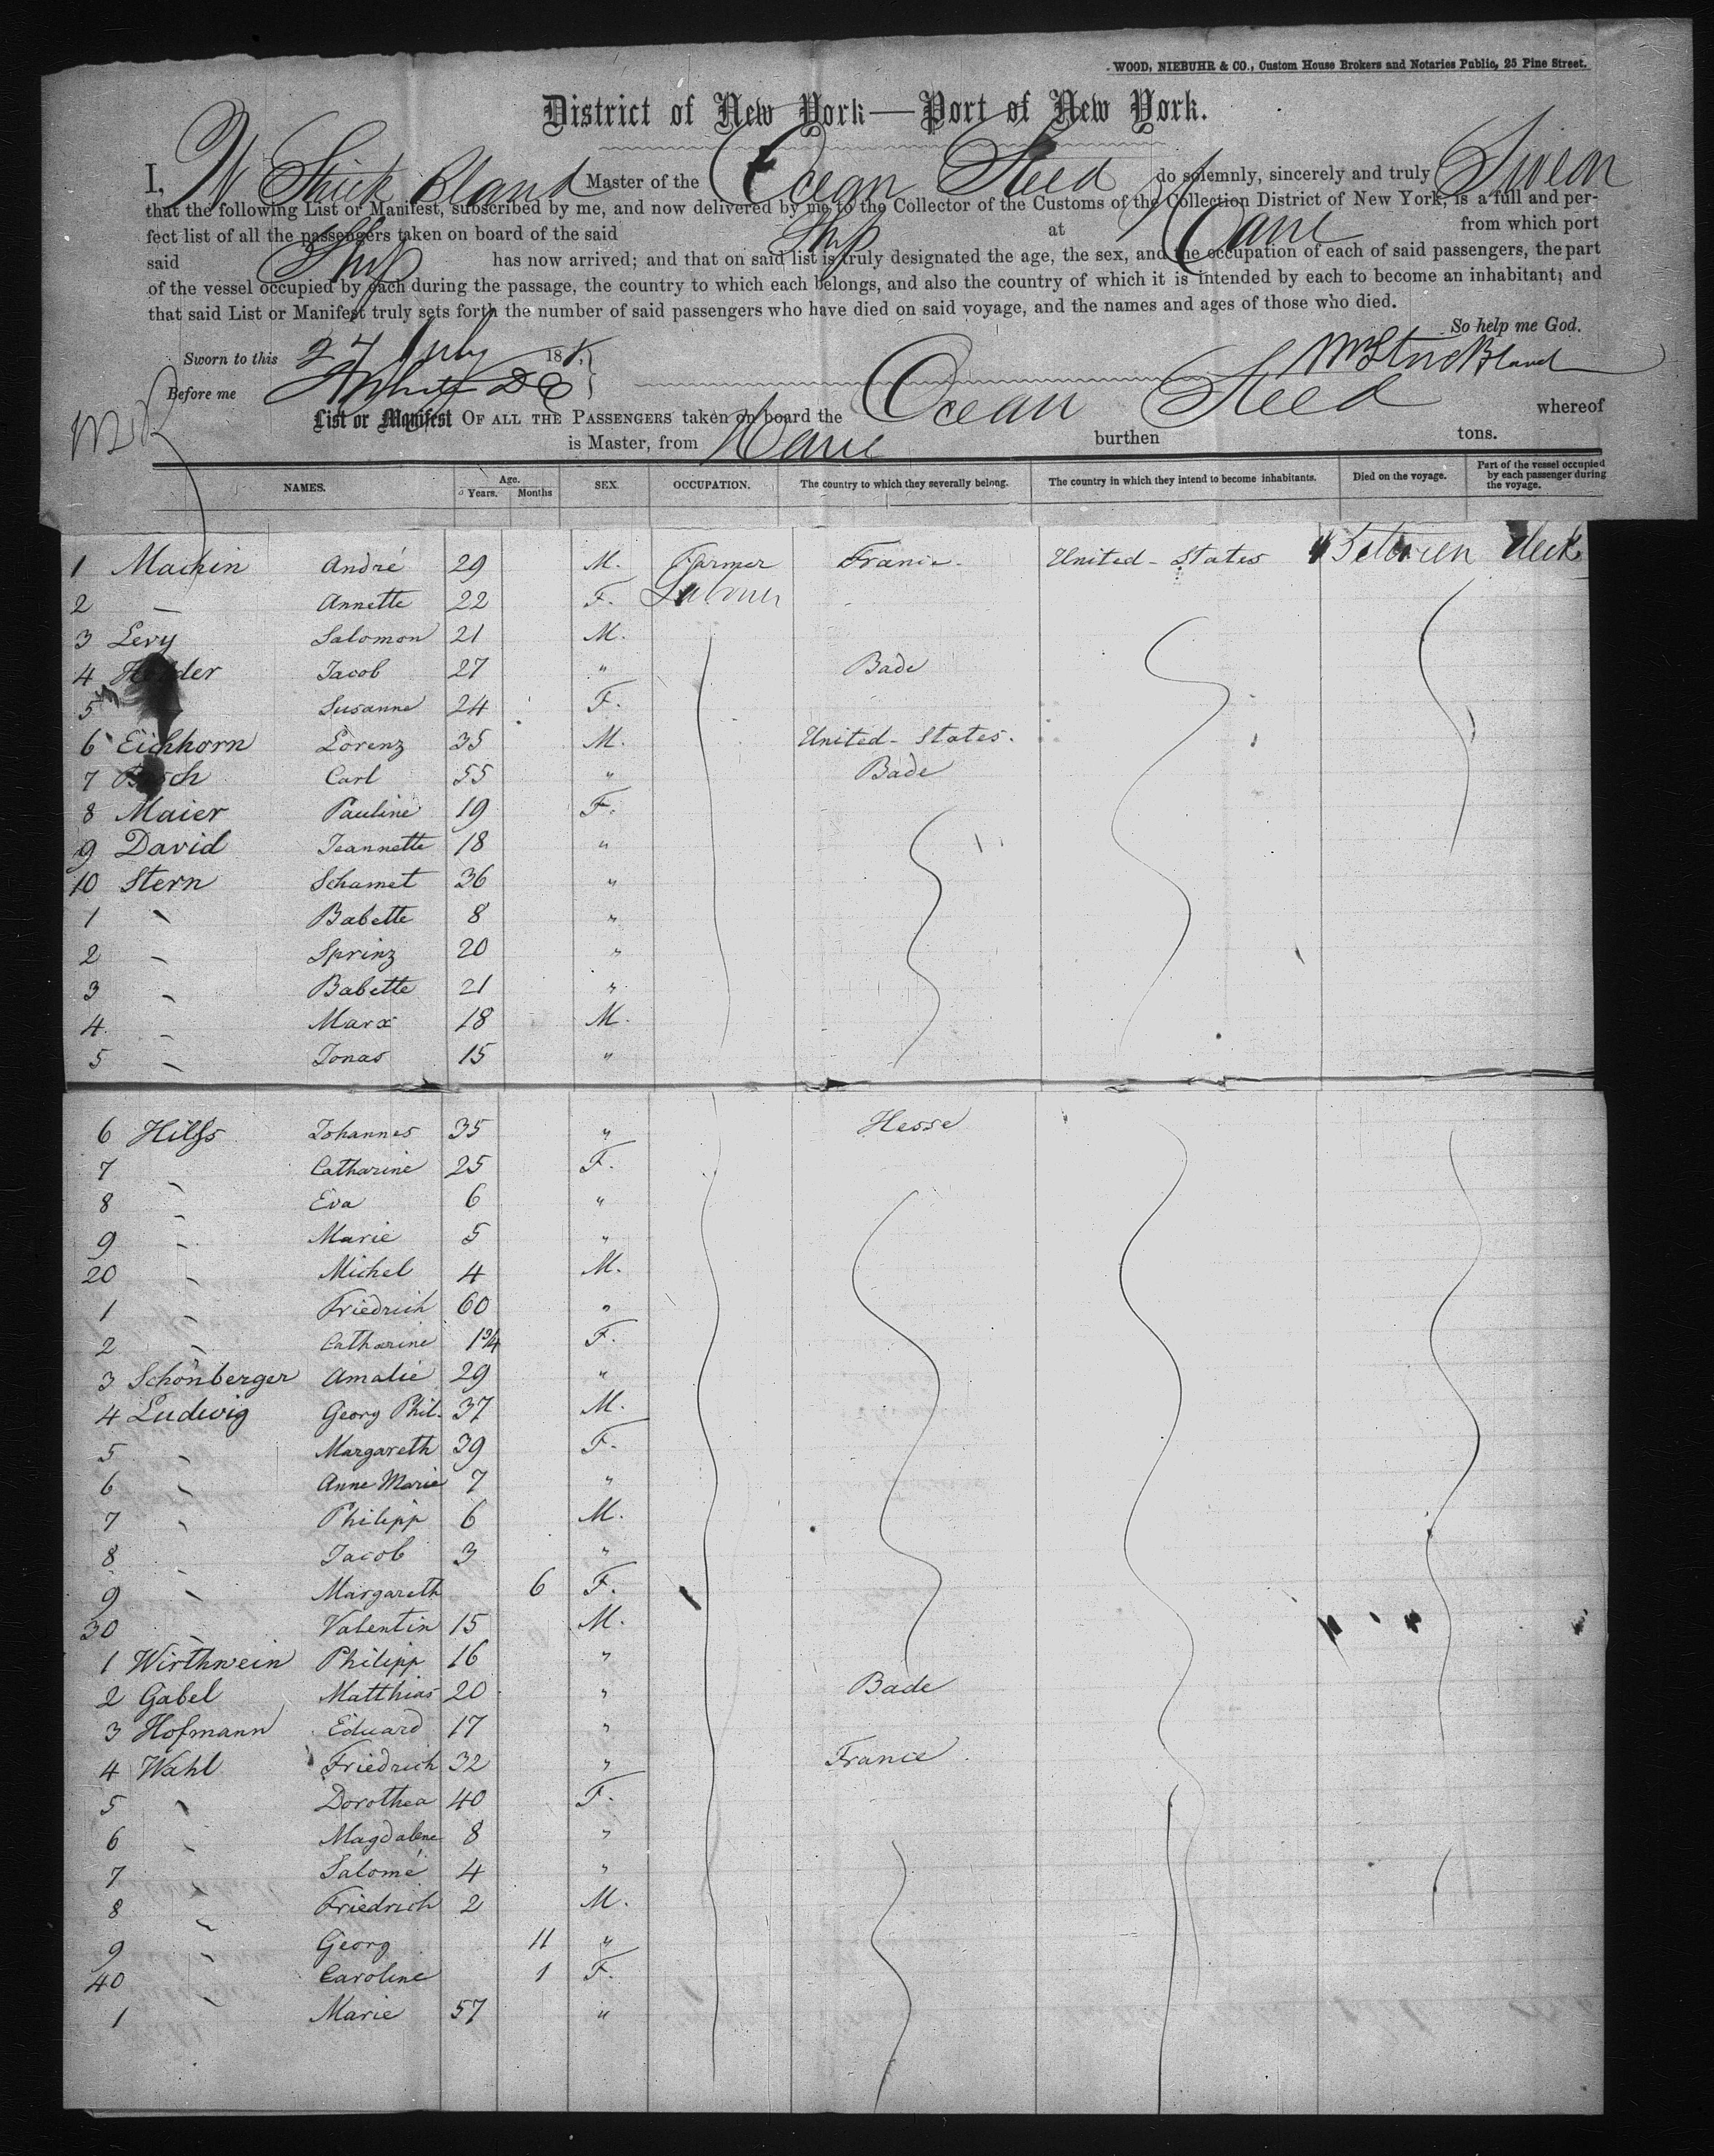 WOOD, NIEBUHR & CO., Custom House Brokers and Notaries Public, 25 Pine Street.
District of New York—Port of New York.
I, W Strick Bland Master of the Ocean Steed do solemnly, sincerely and truly Swear
that the following List or Manifest, subscribed by me, and now delivered by me to the Collector of the Customs of the Collection District of New York, is a full and per-
fect list of all the passengers taken on board of the said Ship at Havre from which port
said Ship has now arrived; and that on said list is truly designated the age, the sex, and the occupation of each of said passengers, the part
of the vessel occupied by each during the passage, the country to which each belongs, and also the country of which it is intended by each to become an inhabitant; and
that said List or Manifest truly sets forth the number of said passengers who have died on said voyage, and the names and ages of those who died.
So help me God.
Sworn to this 27 July 18
Wm Strickland
Before me
List or Manifest OF ALL THE PASSENGERS taken on board the Ocean Steed whereof
is Master, from Havre burthen tons.
NAMES. Age. Years. Months SEX. OCCUPATION. The country to which they severally belong. The country in which they intend to become inhabitants. Died on the voyage. Part of the vessel occupied by each passenger during the voyage.
1 Machin André 29 M. Farmer France. United-States Between deck
2 – Annette 22 F. Labour
3 Levy Salomon 21 M.
4 Jacob 27 " Bade
5 Susanne 24 F.
6 Eichhorn Lorenz 35 M. United-States.
7 Carl 55 " Bade
8 Maier Pauline 19 F.
9 David Jeannette 18 "
10 Stern Schamet 36 "
1 – Babette 8 "
2 – Sprinz 20 "
3 – Babette 21 "
4 – Marx 18 M.
5 – Jonas 15 "
6 Hilfs Johannes 35 " Hesse
7 – Catharine 25 F.
8 – Eva 6 "
9 – Marie 5 "
20 – Michel 4 M.
1 – Friedrich 60 "
2 – Catharine 1 3/4 F.
3 Schönberger Amalie 29 "
4 Ludwig Georg Phil. 37 M.
5 – Margareth 39 F.
6 – Anne Marie 7 "
7 – Philipp 6 M.
8 – Jacob 3 "
9 – Margareth 6 F.
30 – Valentin 15 M.
1 Wirthwein Philipp 16 "
2 Gabel Matthias 20 " Bade
3 Hofmann Eduard 17 "
4 Wahl Friedrich 32 " France
5 – Dorothea 40 F.
6 – Magdalene 8 "
7 – Salomé 4 "
8 – Friedrich 2 M.
9 – Georg 11 "
40 – Caroline 1 F.
1 – Marie 57 "